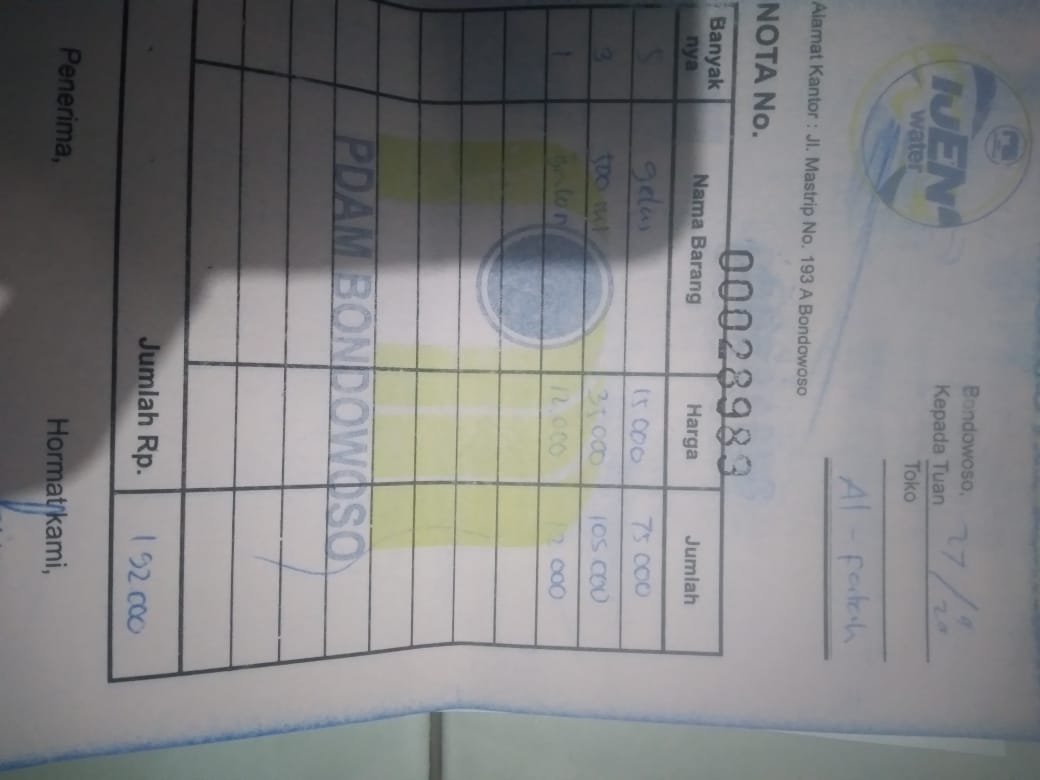 IJEN
water
Alamat Kantor : Jl. Mastrip No. 193 A Bondowoso
Bondowoso, 27/9 20
Kepada Tuan
Toko
Al-Fatah
NOTA No. 00028983
Banyak nya Nama Barang Harga Jumlah
5 gelas 15 000 75 000
3 500 ml 35 000 105 000
1 galon 12.000 12 000
PDAM BONDOWOSO
Jumlah Rp. 192.000
Penerima, Hormat kami,